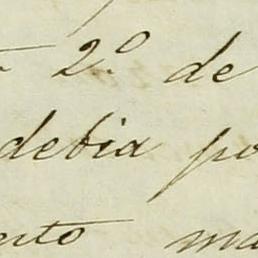 2º de
debia po
nto ma